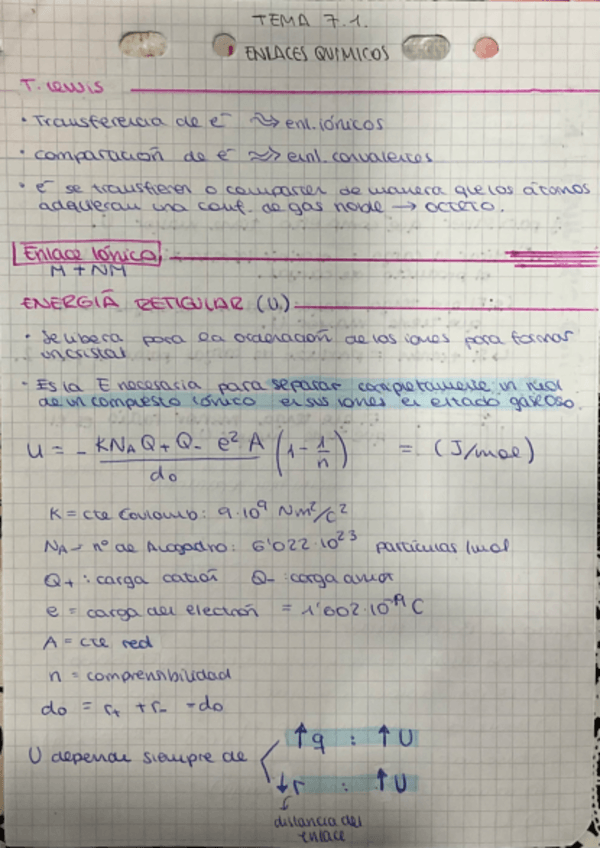 TEMA 7.1.
ENLACES QUIMICOS
T. Lewis
• Transferencia de e⁻ ⇝ enl. iónicos
• comparación de e⁻ ⇝ enl. convalentes
• e⁻ se transfieren o comparten de manera que los átomos
adquieran una conf. de gas noble → octeto.
Enlace Iónico
M + NM
ENERGÍA RETICULAR (U)
• Se libera para la ordenación de los iones para formar
un cristal
• Es la E necesaria para separar completamente un mol
de un compuesto iónico en sus iones en estado gaseoso.
U = - KNA Q+ Q- e² A / do (1 - 1/n) = (J/mol)
K = cte Coulomb: 9·10⁹ Nm²/c²
NA = nº de Avogadro: 6'022·10²³ partículas/mol
Q+ : carga catión Q- : carga anión
e = carga del electrón = 1'602·10⁻¹⁹ C
A = cte red
n = comprensibilidad
do = r+ + r- = do
U depende siempre de
↑q : ↑U
↓r : ↑U
distancia del
enlace